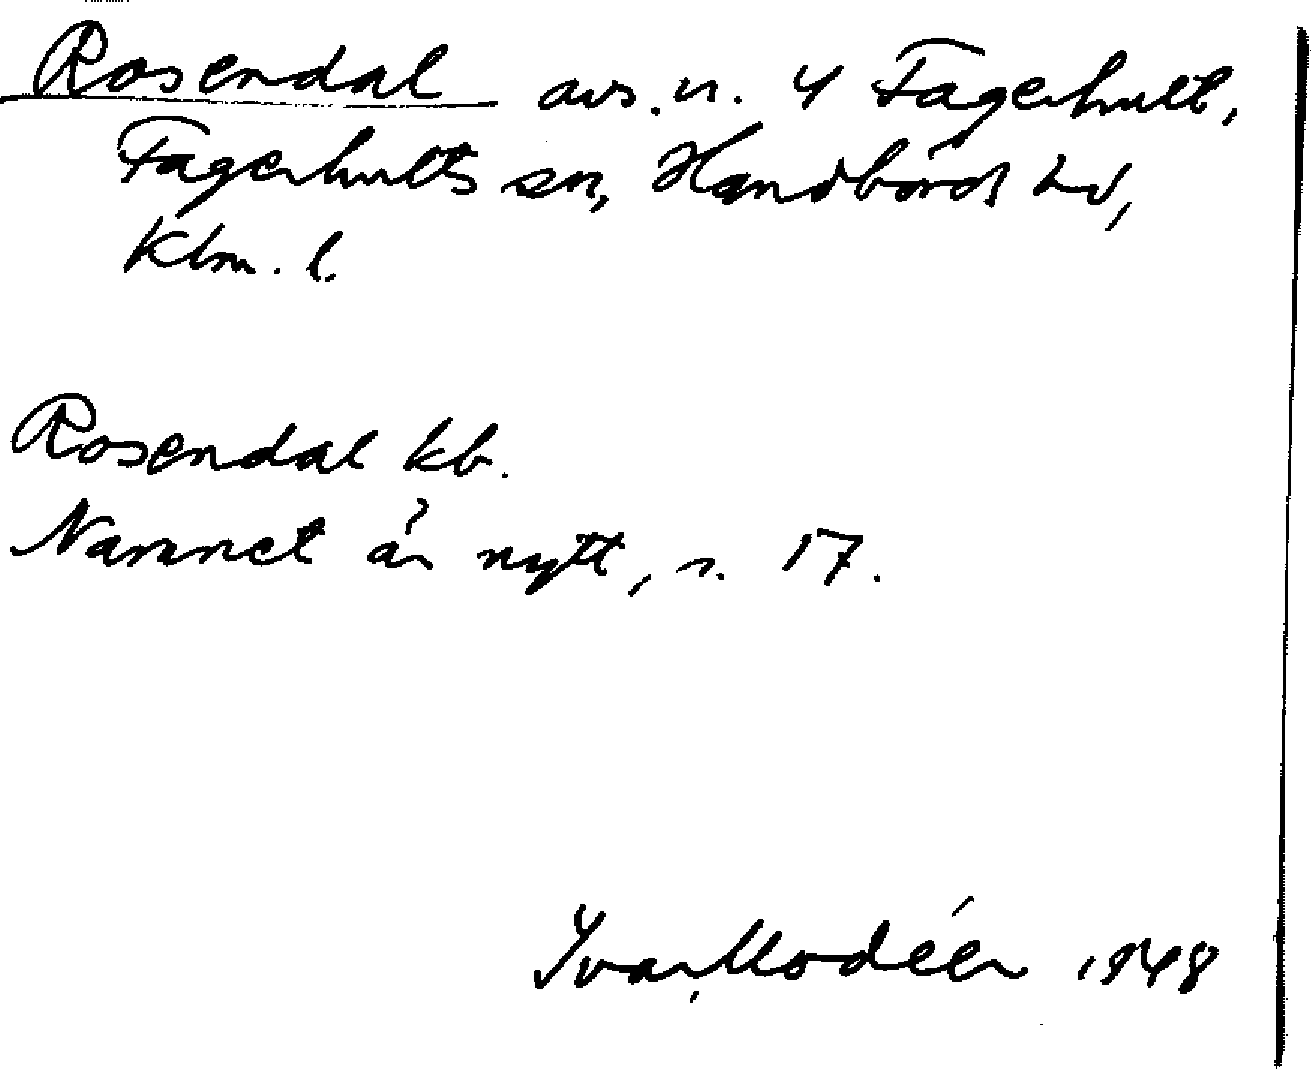 Rosendal avs. n. 4 Fagerhult,
Fagerhults sn, Handbörds hd,
Klm. l.
Rosendal kb.
Namnet är nytt, s. 17.
Ivar Modéer 1948